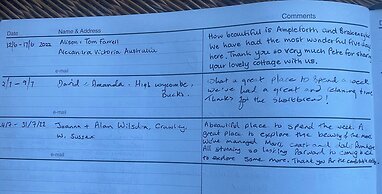 Date Name & Address Comments
12/6 - 17/6 2022 Alison & Tom Farrell
Alexandra Victoria Australia
How beautiful is Ampleforth and
We have had the most wonderful five days
here. Thank you so very much Pete for sharing
your lovely cottage with us.
e-mail
2/7 - 9/7 David & Amanda, High Wycombe,
Bucks.
What a great place to spend a week
we've had a great and relaxing time
Thanks for the shortbread!
e-mail
31/7/22 Joanna & Alan Wilson, Crawley,
W. Sussex
A beautiful place to spend the week. A
great place to explore the beauty of the
we've managed coast and
All stunning so looking forward to coming back
to explore some more. Thank you for the
e-mail